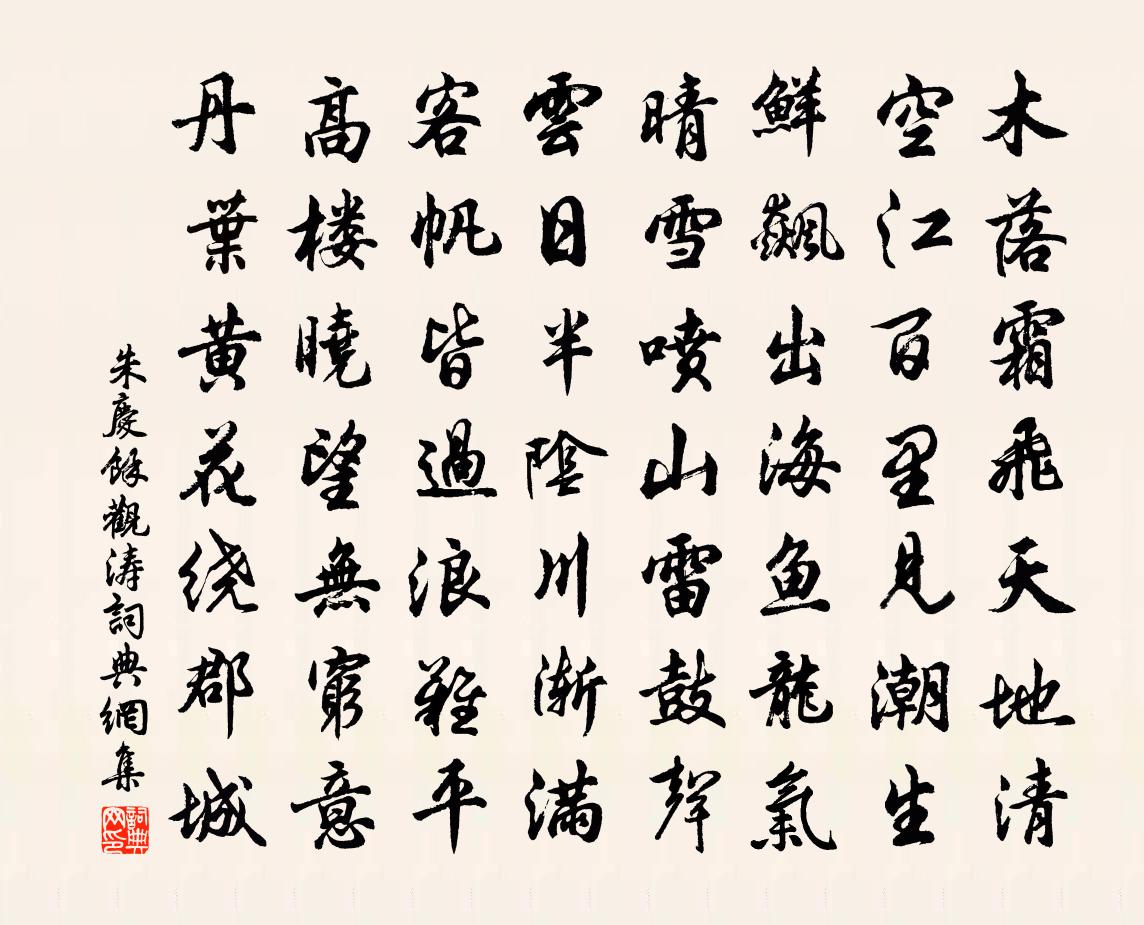 木落霜飛天地清
空江百里見潮生
鮮飇出海魚龍氣
晴雪噴山雷鼓聲
雲日半陰川漸滿
客帆皆過浪難平
高樓曉望無窮意
丹葉黃花繞郡城
朱慶餘觀濤詞典網集
詞典网印